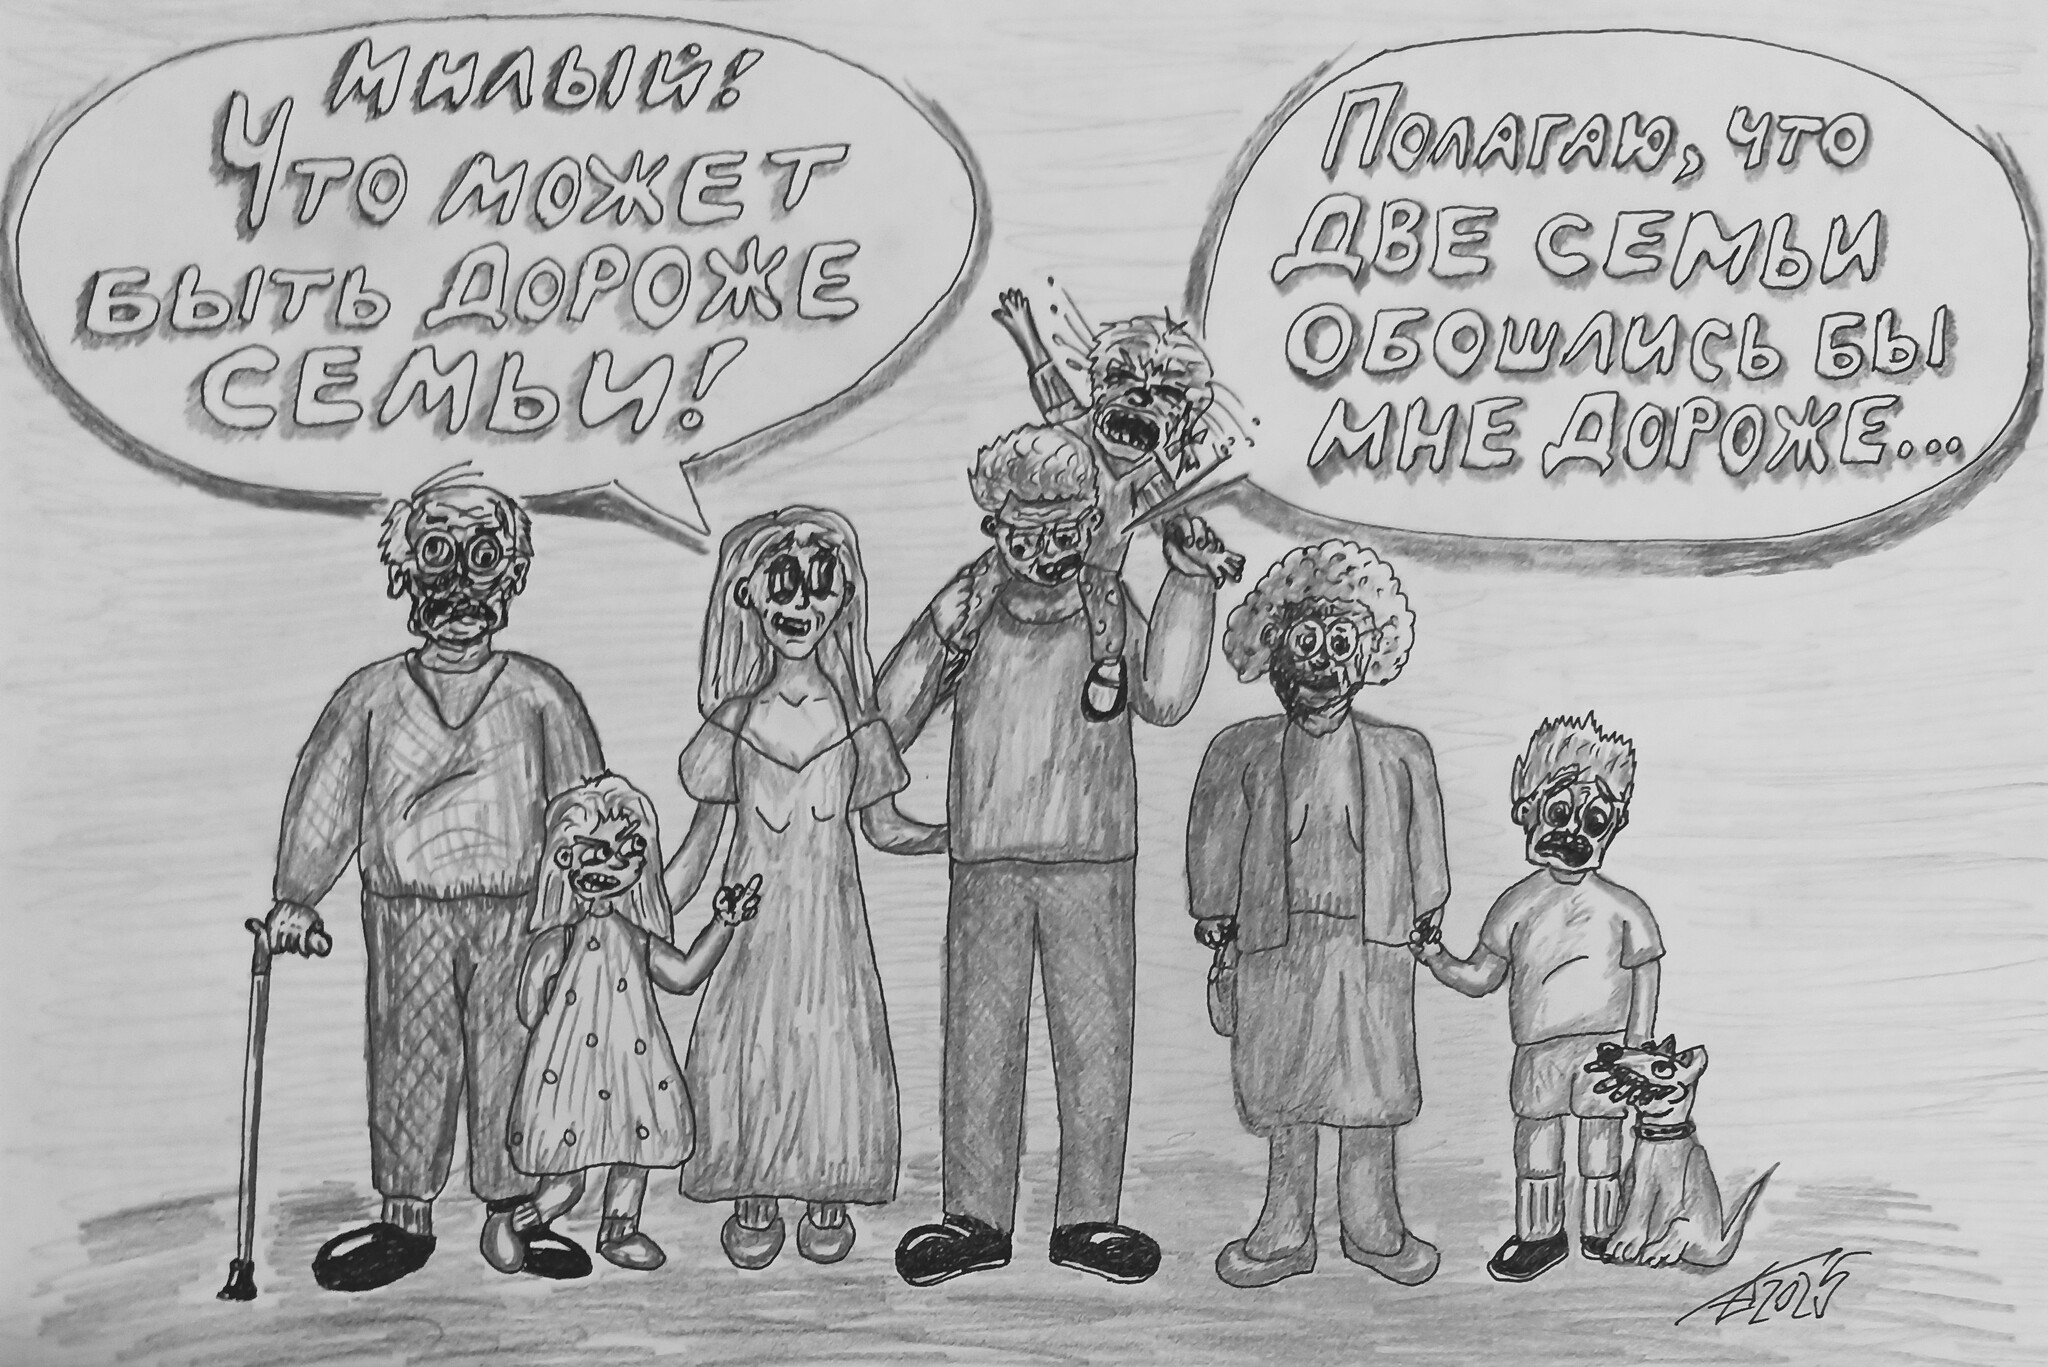 Милый!
Что может
быть дороже
семьи!
Полагаю, что
две семьи
обошлись бы
мне дороже...
2025